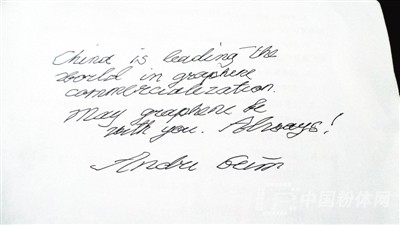 China is leading the
world in graphene
commercialization.
May graphene be
with you. Always!
Andre Geim
中国粉体网